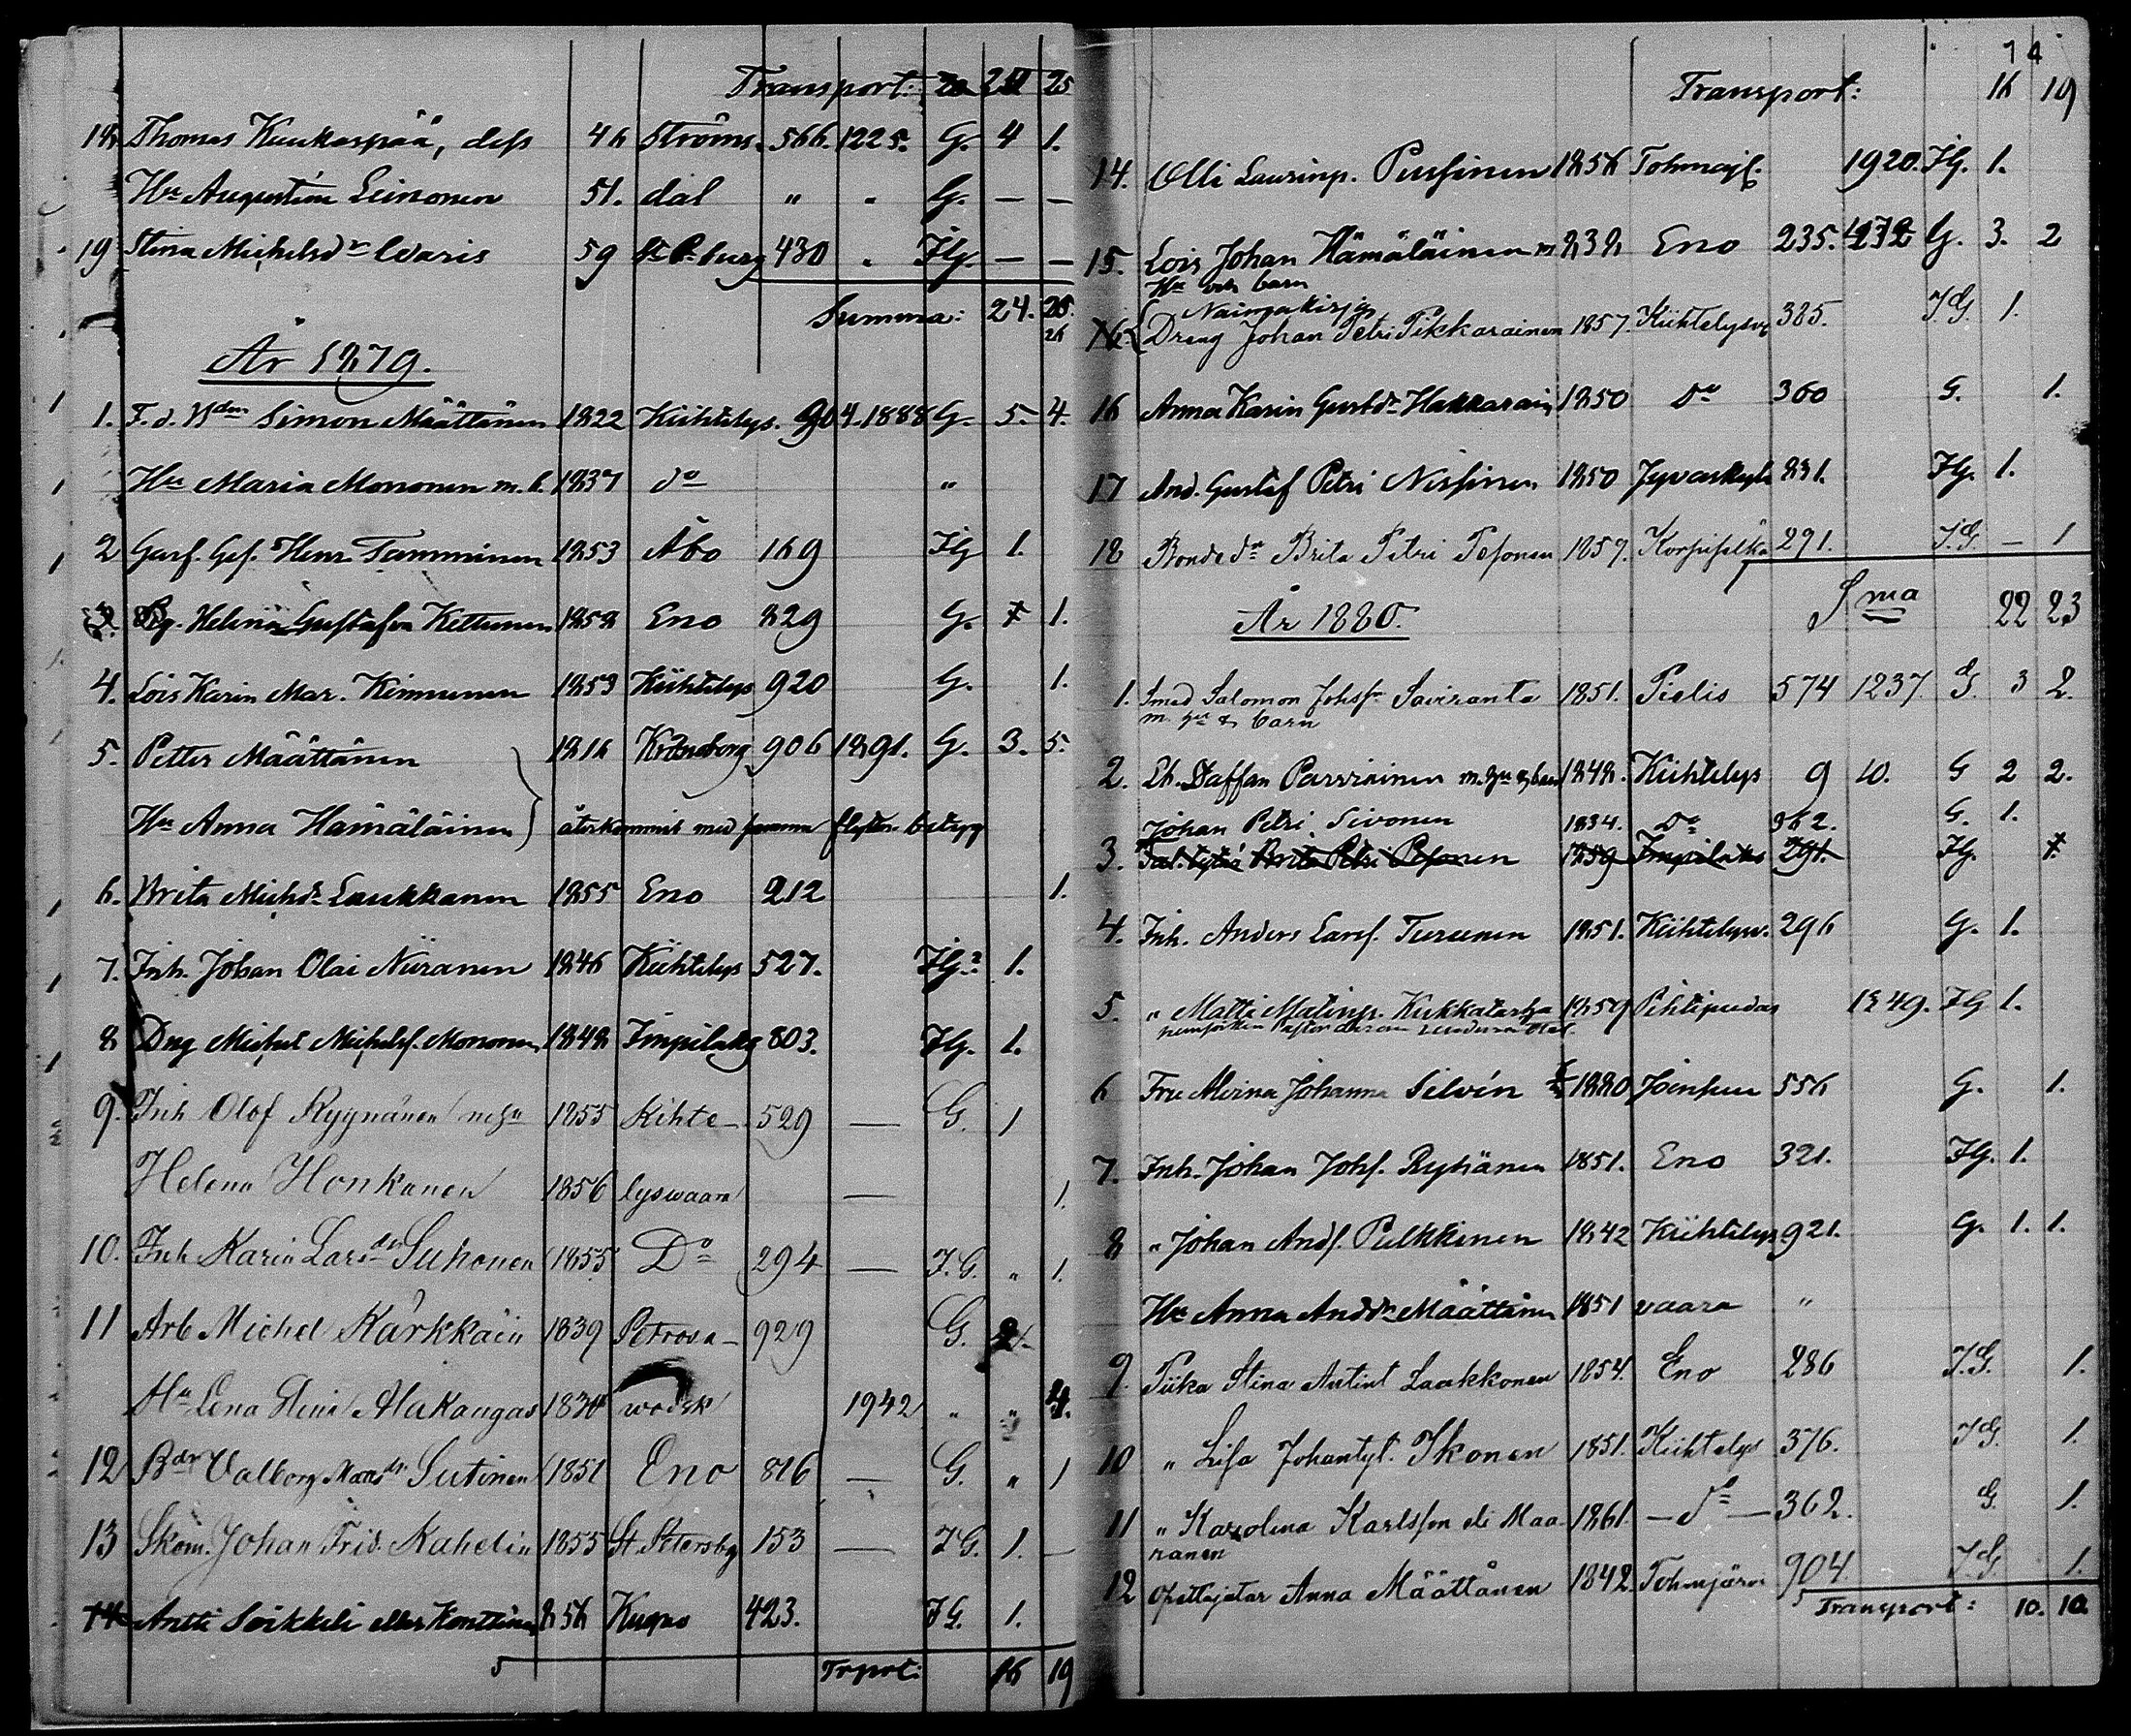 Transport: 20 24 25
18 Thomas Kuukaspää, dess 46 Ströms. 566. 1225. G. 4 1.
Hu Augustina Leinonen 51. dal " " G. — —
19 Stina Michelsdr Waris 59 St. P-burg 430 " Flg. — —
Summa: 24. 25.
26
År 1879.
1. F. d. Ndm Simon Määttänen 1822 Kiihtelys. 904. 1888 G. 5. 4.
Hu Maria Mononen m. b. 1837 do "
2 Henr Tamminen 1853 Åbo 169 Flg 1.
3. Helena Gustafva Kettunen 1858 Eno 829 G. 1.
4. Lois Karin Mar. Kinnunen 1859 Kiihtelys 920 G. 1.
5. Petter Määttänen 1816 Kronoborg 906 1891. G. 3. 5.
Hu Anna Hämäläinen återkommit med samma betyg
6. Brita Michdr Laukkanen 1855 Eno 212 1.
7. Inh. Johan Olai Niiranen 1846 Kiihtelys 527. Flg. 1.
8 Dng Michel Michelss. Mononen 1848 Impilaks 803. Flg. 1.
9. Inh Olof Ryynänen m hu 1855 Kihte- 529 — G. 1
Helena Honkanen 1856 lyswaara — 1.
10. Inh Karin Larsdr Suhonen 1855 Do 294 — F.G. " 1.
11 Arb Michel Kärkkäin 1839 Petrosa- 929 G. 2.
Hu Lena Alakangas 1830 wodsk 1942 " " 4.
12 Bdr Valborg Matsdr Sutinen 1851 Eno 816 — G. " 1
13 Skom. Johan Frid. Nahelin 1855 St. Petersbg 153 — F G. 1. —
14 Antti Soikkeli eller Konttinen 856 Kuopio 423. F G. 1.
Trprt: 16 19
74
Transport: 16 19
14. Olli Laurinp. Pussinen 1856 Tohmajf. 1920. Flg. 1.
15. Lois Johan Hämäläinen m 838 Eno 235. 472 G. 3. 2
Hu och barn
Naimakirja
16. Dräng Johan Petri Pikkarainen 1857. Kiihtelysv 385. F.G. 1.
16 Anna Karin Gustdr Hakkarain 1850 Do 360 G. 1.
17 And. Gustaf Petri Nissinen 1850 Jyvaskyla 831. Flg. 1.
18 Bondedr Brita Petri Pesonen 1859. Korpiselkä 291. F.G. — 1
Sma 22 23
År 1880.
1. Smed Salomon Johss. Saviranta 1851. Pielis 574 1237. G. 3 2.
m. hu & barn
2. Staffan Parviainen m. hu & barn 1848. Kiihtelys 9 10. G 2 2.
Johan Petri Sivonen 1834. Do 362. G. 1.
3. Brita Petri Pesonen 1859 Impilaks 291. Flg. 1.
4. Inh. Anders Larss. Turunen 1851. Kiihtelysv. 296 G. 1.
5. " Matti Matinp. 1859 Pihtipudas 1849. FG 1.
6 Fru Alvina Johanna Silvén 1880 Joensuu 556 G. 1.
7. Inh. Johan Johss. Ryhänen 1851. Eno 321. Flg. 1.
8 " Johan Ands. Pulkkinen 1842 Kiihtelys 921. G. 1. 1.
Hu Anna Anddr Määttänen 1851 vaara "
9. Piika Stina Antint Laakkonen 1854. Eno 286 F.G. 1.
10 " Lisa Johantyt. Ikonen 1851. Kiihtelys 376. F G. 1.
11 " Karolina Karlsson eli Maa- 1861. — do — 362. G. 1.
ranen
12 Opettajatar Anna Määttänen 1842. Tohmjärvi 904 F.G. 1.
Transport: 10. 10.